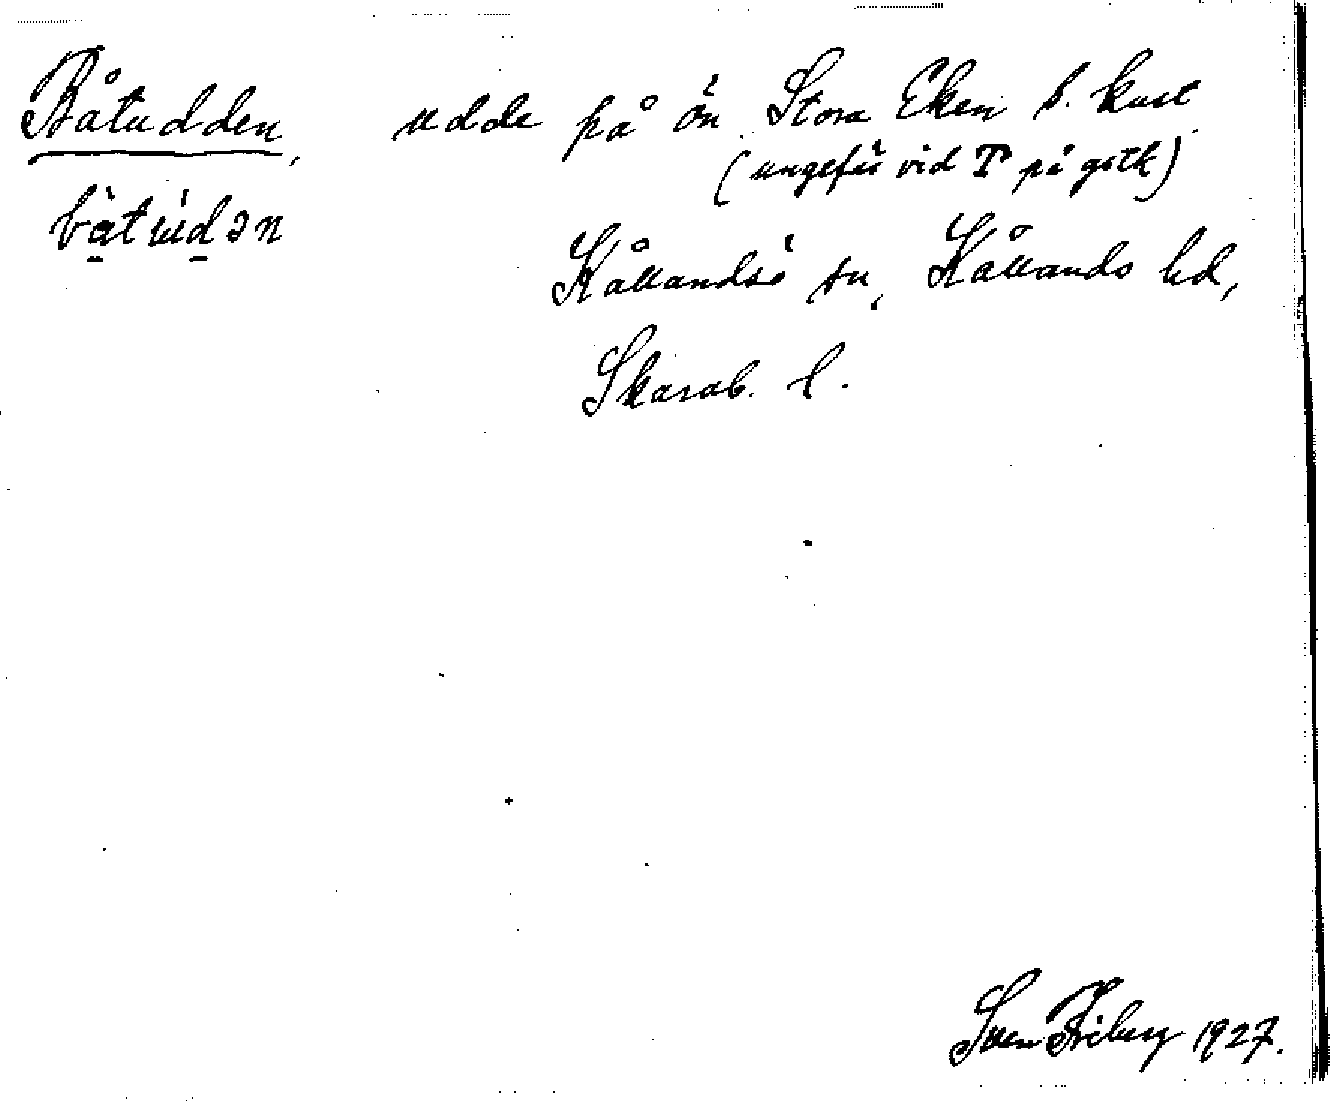 Båtudden, udde på ön Stora Eken s. kust
(ungefär vid T på gstk)
bàtúdən
Kållandsö sn, Kållands hd,
Skarab. l.
Sven Friberg 1927.